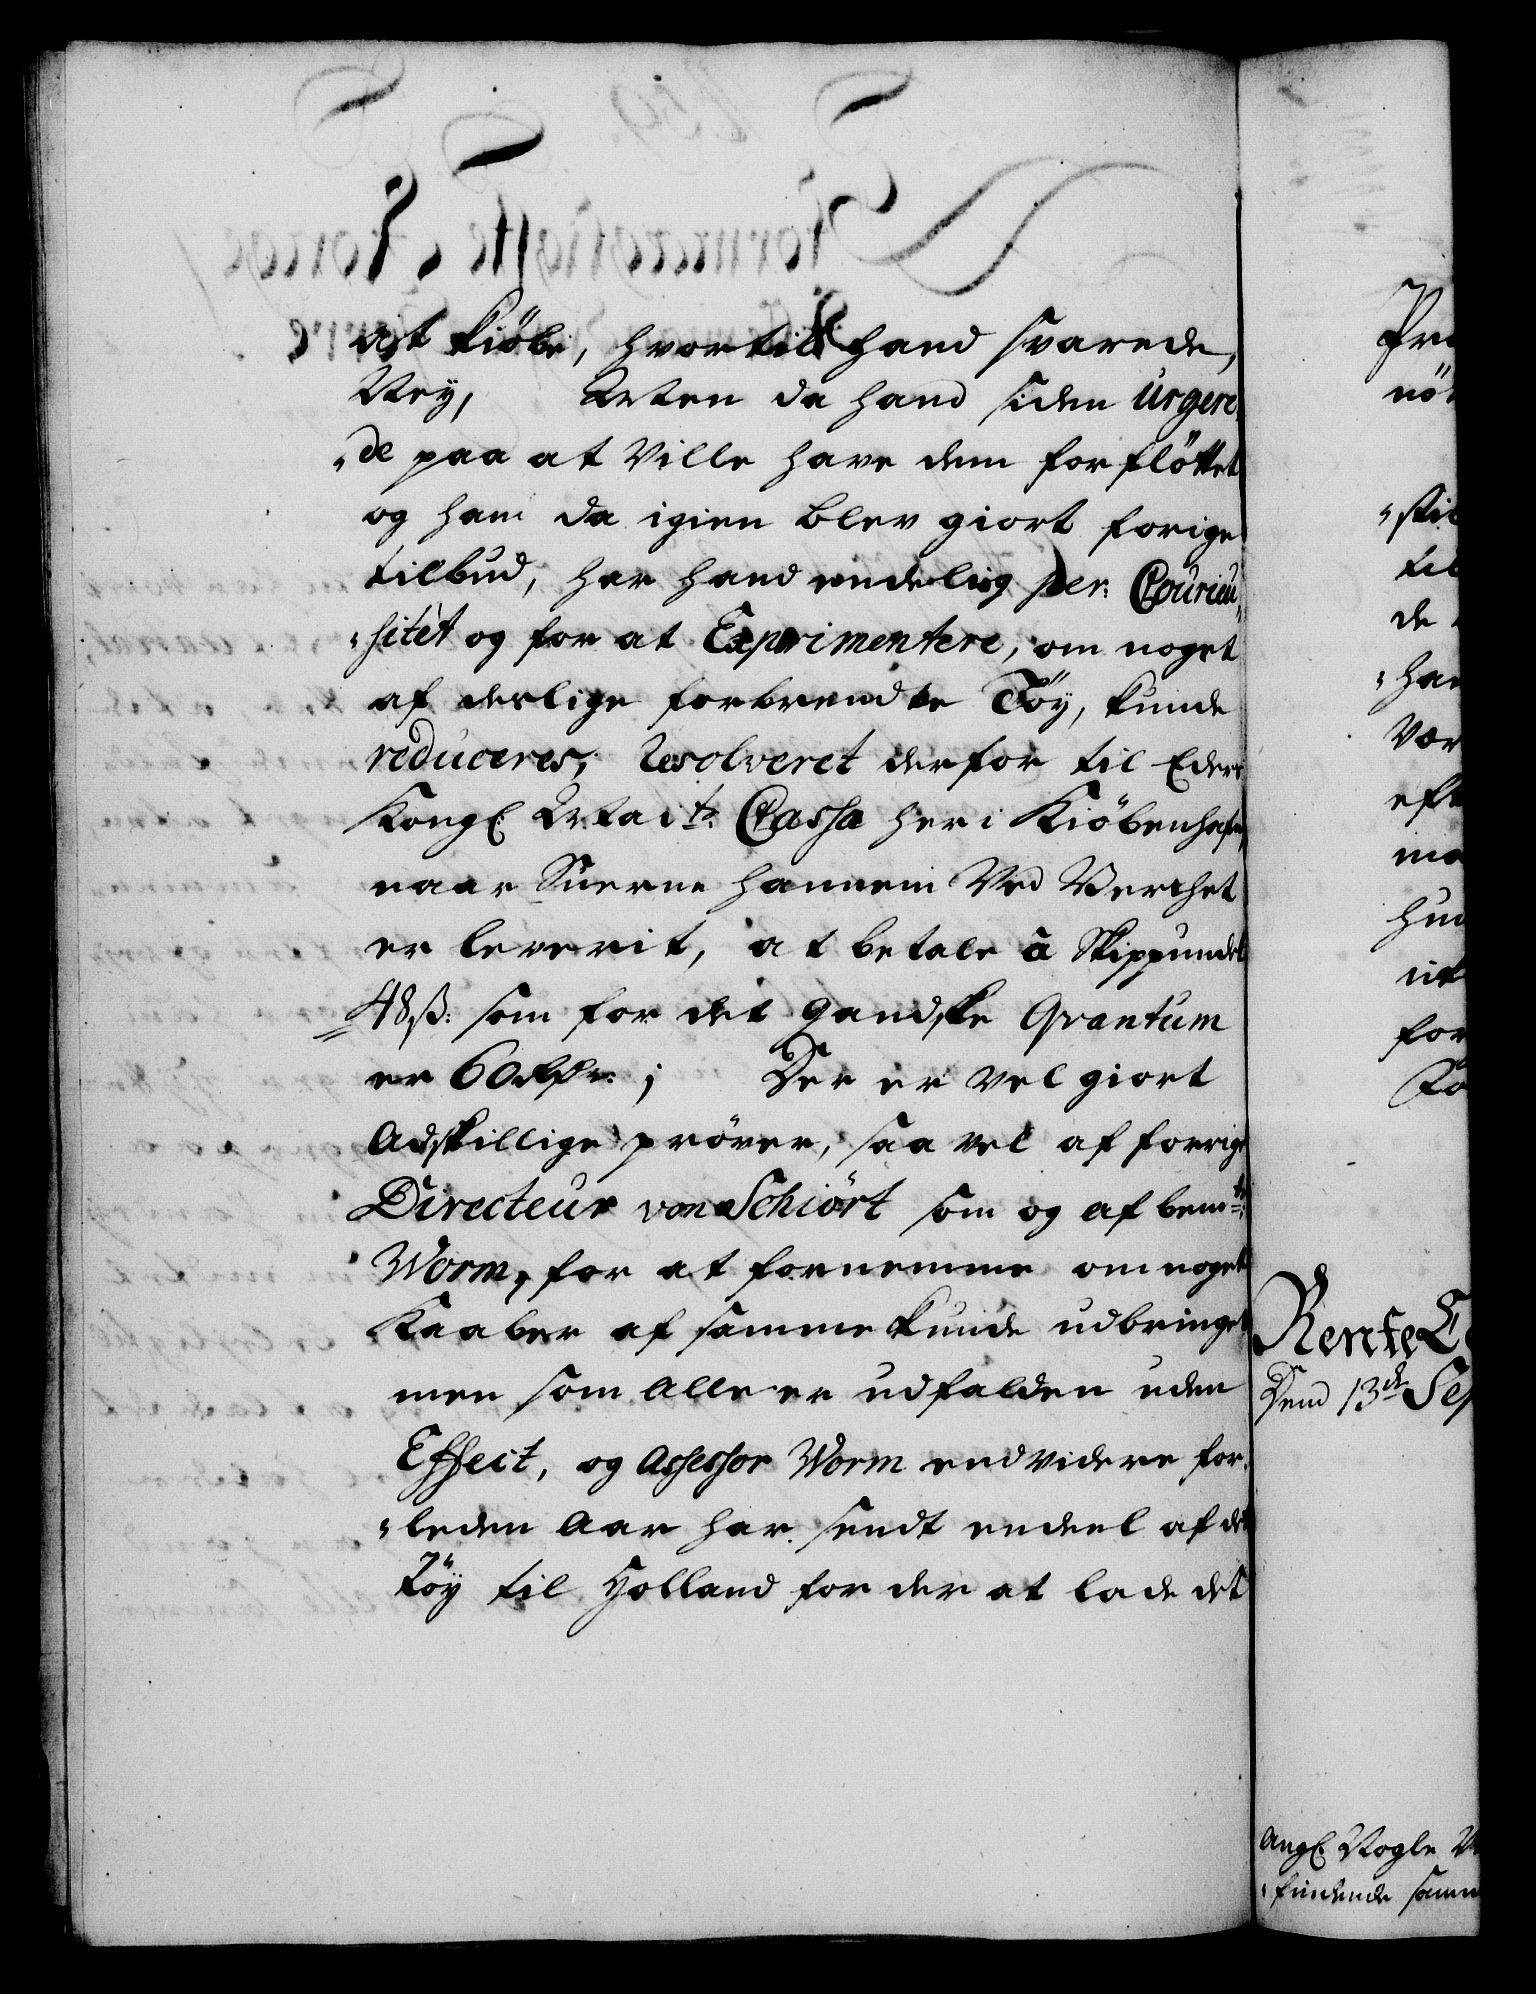 at kiöbe, hvortil hand svarede,
Ney, Men da hand siden urgere,
„de paa at ville have dem forfløttet
og ham da igien blev giort forige
tilbud, har hand endelig per: Courieu„
„sitet og for at Experimentere, om noget
af deslige forbrendte Töy, kunde
reduceres, Resolveret derfor til Eders
Kongl: Maits: Cassa her i Kiöbenhafn,
naar Suerne hannem ved Verchet
er leverit, at betale à Skippundet
48 ß: som for det gandske Qvantum
er 60 Rdr: ; Der er vel giort
adskillige pröver, saa vel af forrige
Directeur von Schiört som og af bemte:
Worm, for at fornemme om noget
Kaaber af samme kunde udbringes
men som alle er udfalden uden
Effect, og Assessor Worm endvidere for„
„leden Aar har sendt endeel af det
Töy til Holland for der at lade det
Pre
nö
„skil
til
de
„han
Vær
eft
ma
hun
for
Rente C
Dend 13de Sep
Ang: Nogle
„findende samm